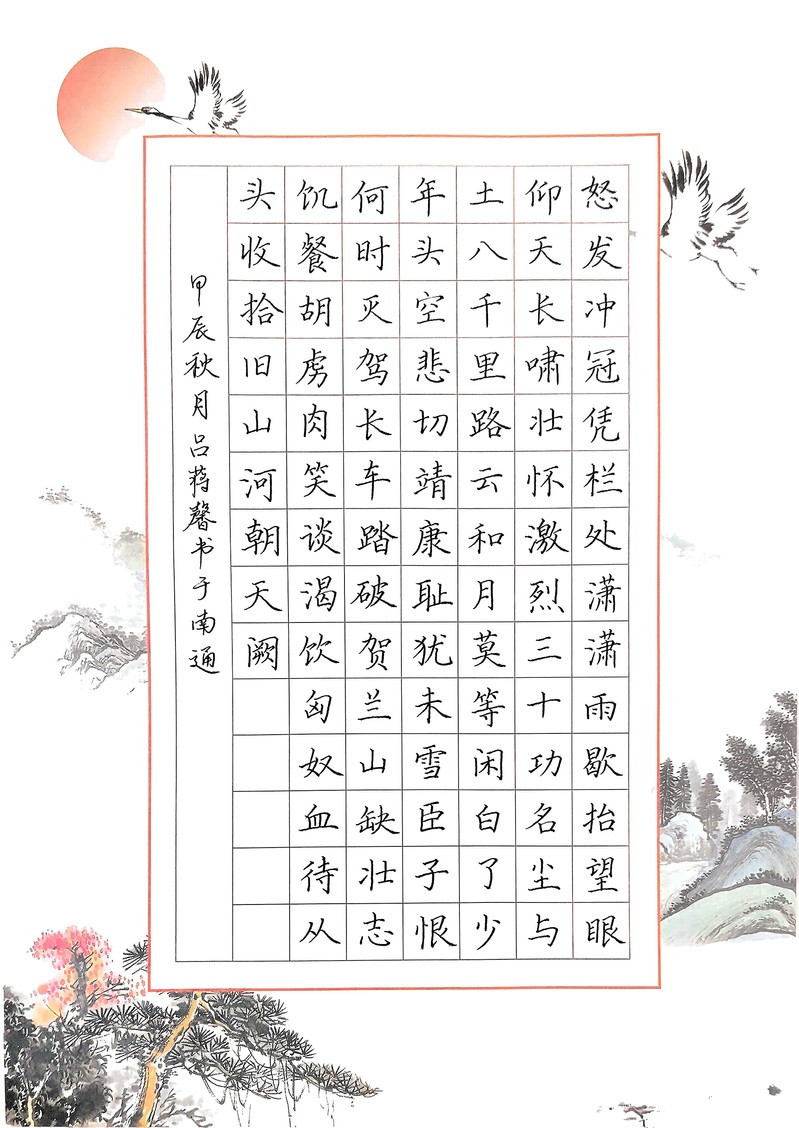 怒发冲冠凭栏处潇潇雨歇抬望眼
仰天长啸壮怀激烈三十功名尘与
土八千里路云和月莫等闲白了少
年头空悲切靖康耻犹未雪臣子恨
何时灭驾长车踏破贺兰山缺壮志
饥餐胡虏肉笑谈渴饮匈奴血待从
头收拾旧山河朝天阙
甲辰秋月吕蒋馨书于南通